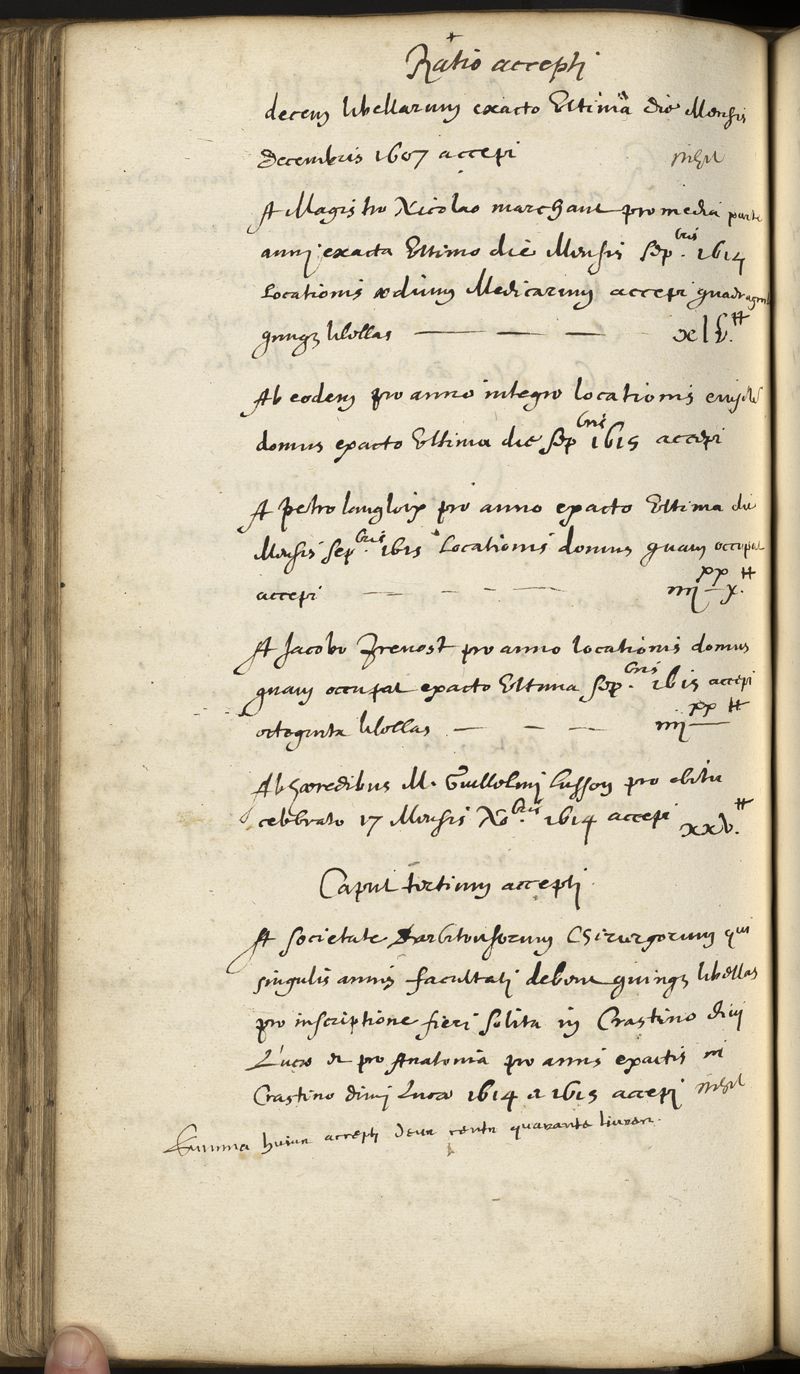 Ratio accepti
decem libellarum exacto Ultima die Mensis
Decembris 1607 accepi nihil
A Magistro Nicolao marchant pro media parte
anni exacta Ultimo die Mensis Sep.bris 1614
Locationis ædium Medicarum accepi quadraginta
quinq3 libellas xlv.#
Ab eodem pro anno integro locationis eiusdem
domus exacto Ultima die Sepbris 1615 accepi
A petro langloix pro anno exacto Ultima die
Mensis Sep.bris 1615 Locationis domus quam occupat
accepi iiij xx x.#
A Jacobo Prevost pro anno locationis domus
quam occupat exacto Ultima Sep.bris 1615 accepi
octoginta libellas iiij xx #
Ab hæredibus M. Guillelmi Lusson pro obitu
celebrato 17 Mensis No.bris 1614 accepi xxv.#
Caput tertium accepti
A societate Barbitonsorum Chirurgorum qui
singulis annis facultati debent quinq3 libellas
pro inscriptione fieri solita in Crastino divi
Lucæ et pro Anatomia pro annis exactis in
Crastino divi Lucæ 1614 et 1615 accepi nihil
Summa huius accepti deux centz quarante livres.